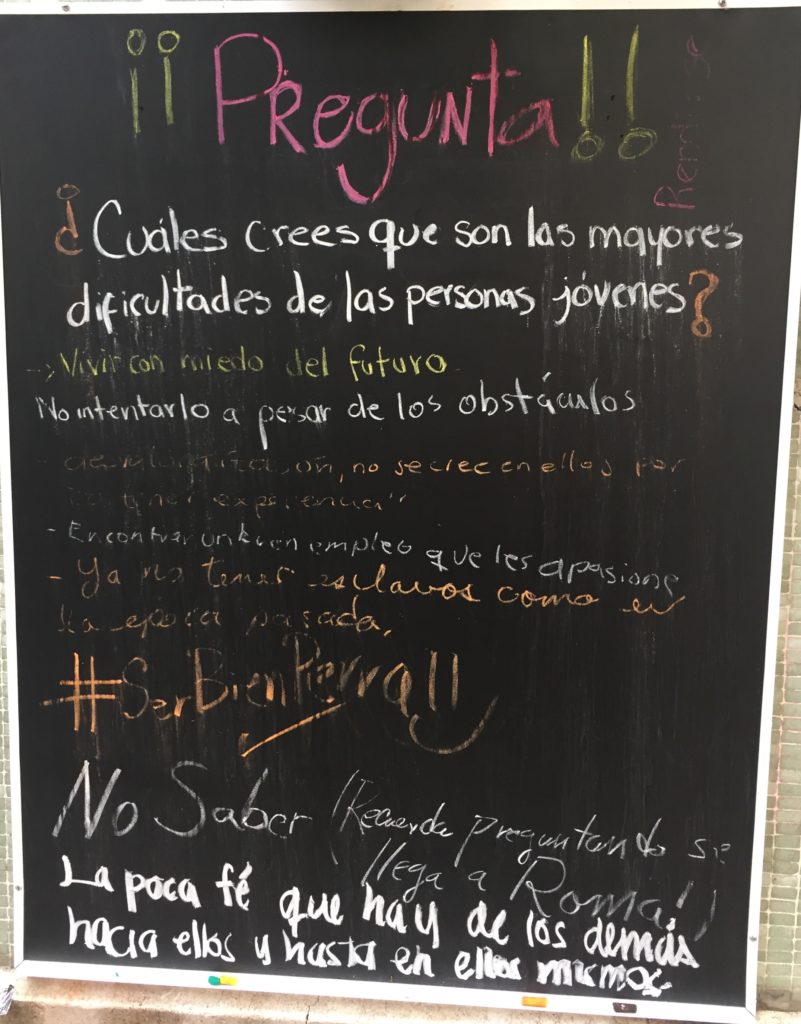 ¡¡Pregunta!!
¿Cuáles crees que son las mayores
dificultades de las personas jóvenes?
-> Vivir con miedo del futuro
No intentarlo a pesar de los obstáculos
no se cree en ellos por
experiencia"
- Encontrar un buen empleo que les apasione
- Ya no tener esclavos como en
la epoca pasada.
#SerBienPierra!!
No Saber (Recuerda preguntando se
llega a Roma!)
La poca fé que hay de los demás
hacia ellos y hasta en ellos mismos